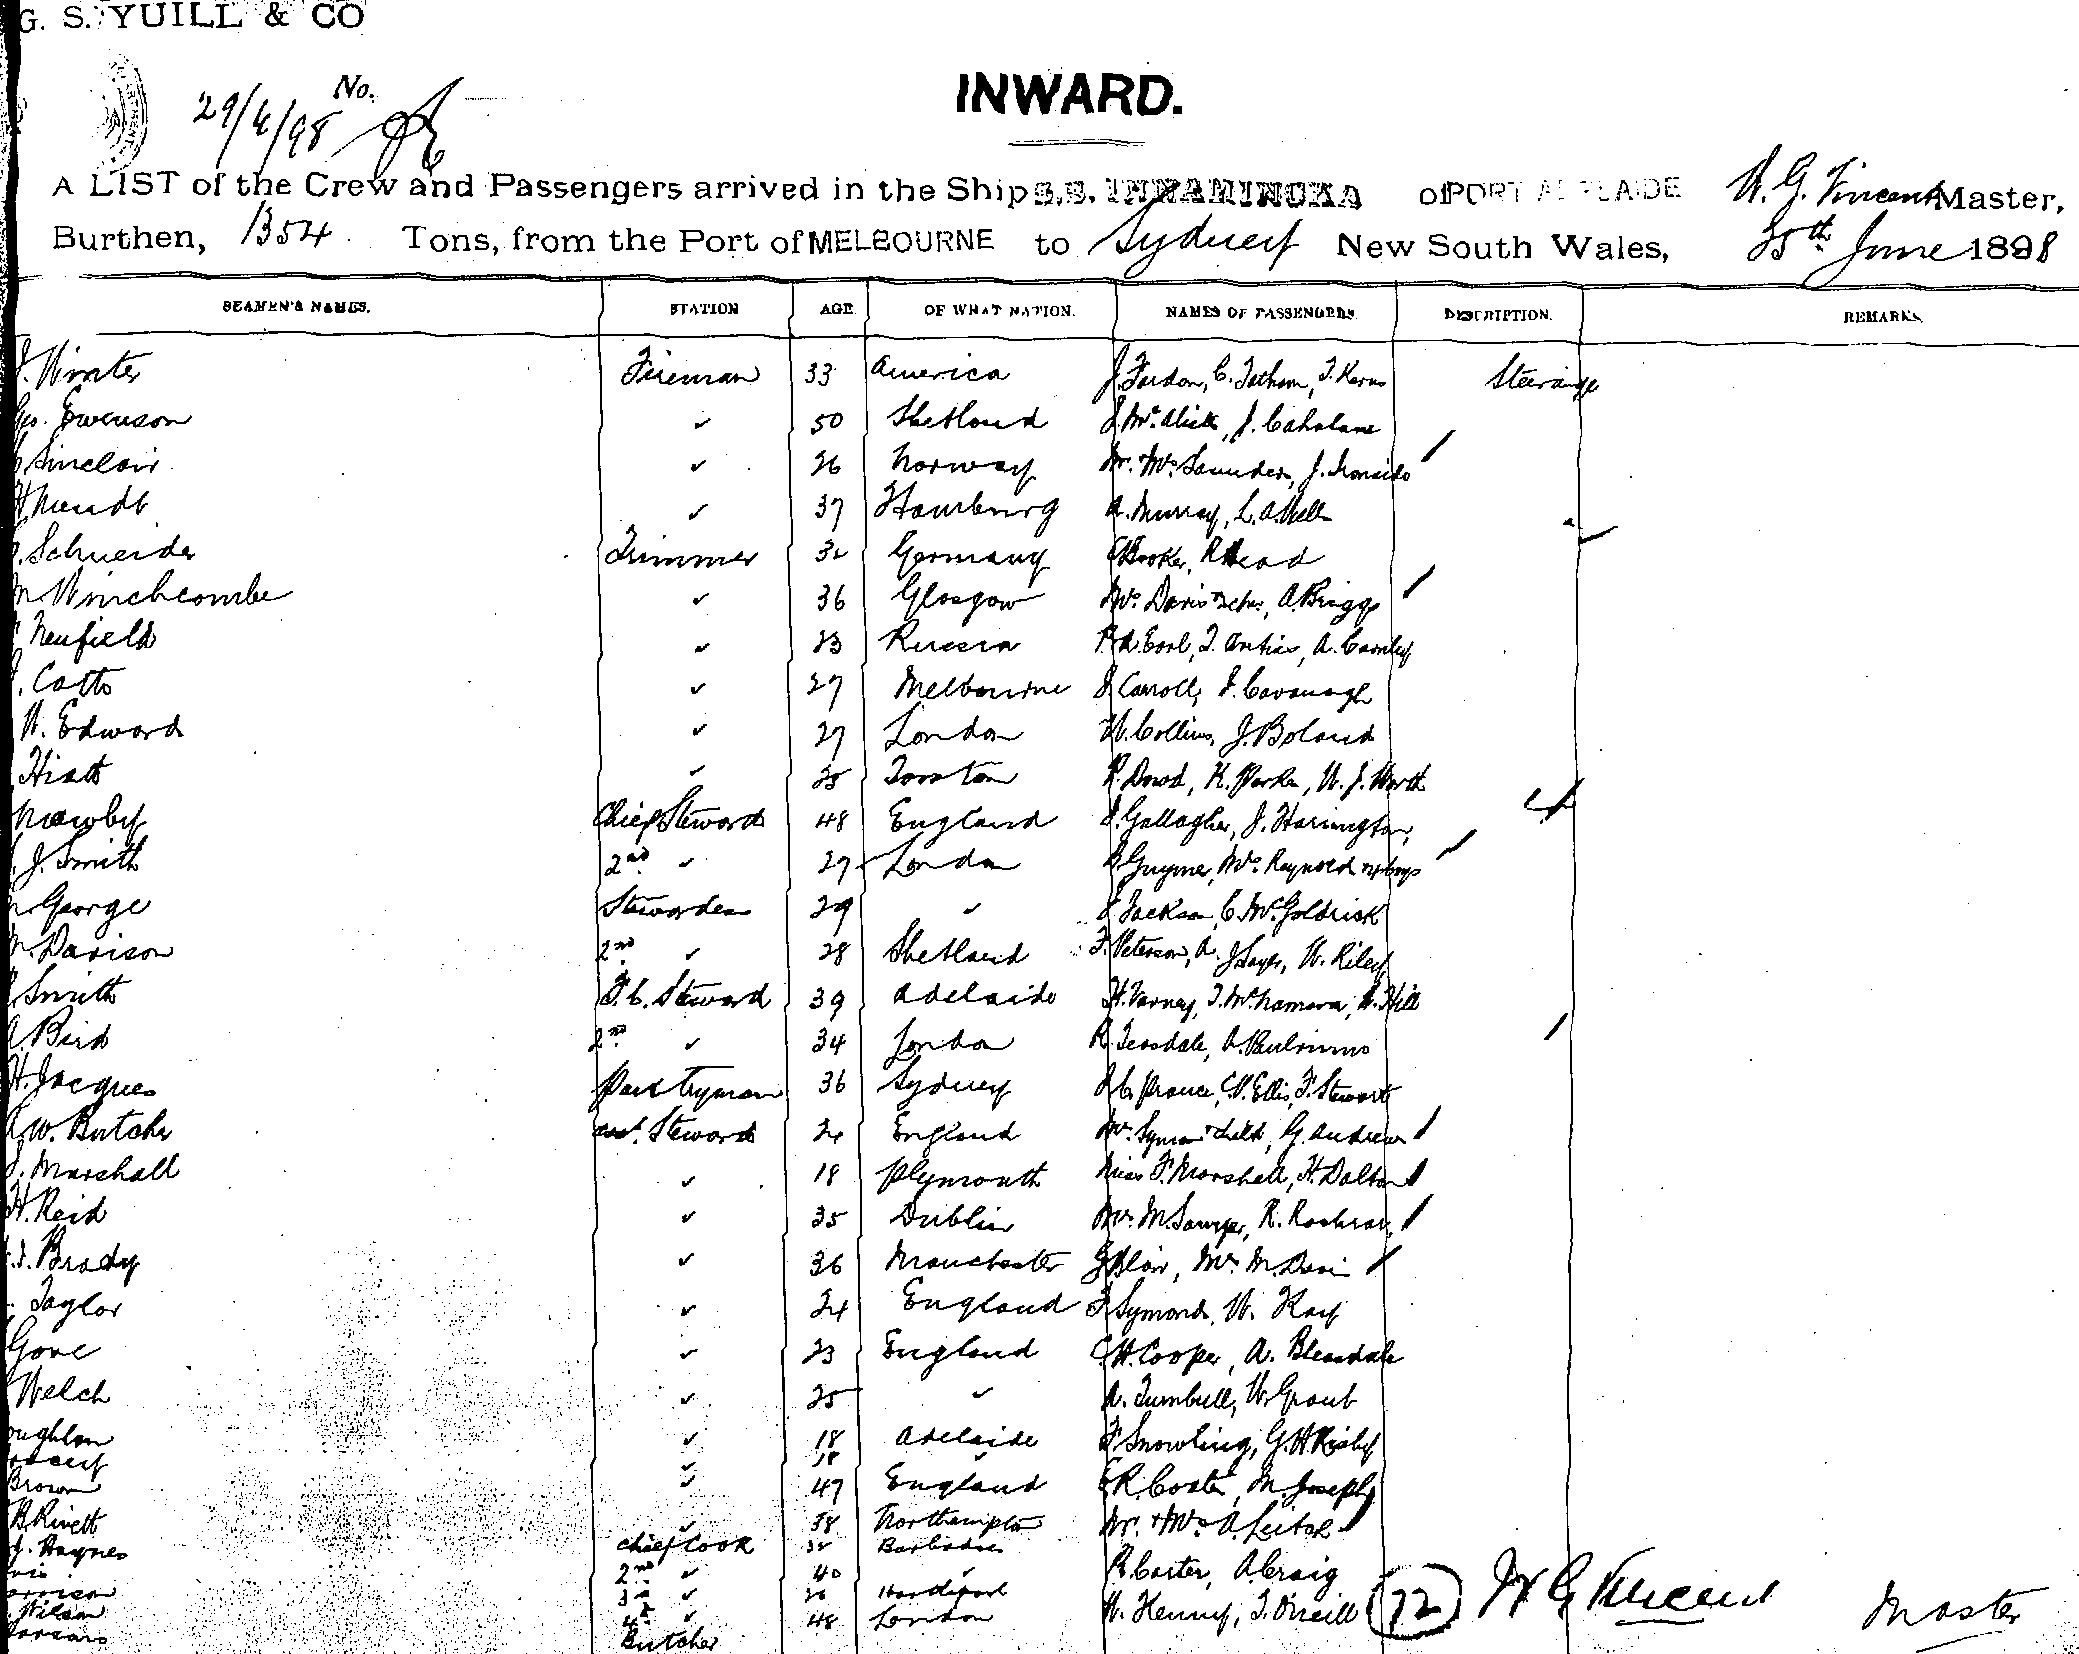 G. S. YUILL & CO
29/6/98 No.
INWARD.
A LIST of the Crew and Passengers arrived in the Ship S.S. INNAMINCKA of PORT ADELAIDE W. G. Vincent Master,
Burthen, 1354 Tons, from the Port of MELBOURNE to Sydney New South Wales, 25th June 1898
SEAMEN'S NAMES. STATION AGE OF WHAT NATION. NAMES OF PASSENGERS. DESCRIPTION. REMARKS
J. Winter Fireman 33 America J. Fardon, C. Tatham, T. Kerns Steerage
Geo. Ewenson ✓ 50 Shetland J. Cahalane
Sinclair ✓ 26 Norway Mr. & Mrs Saunders, J. Ironside
✓ 37 Hamburg A. Murray, L. A. Mells
Schneider Trimmer 32 Germany C Booker, R Head
Winchcombe ✓ 36 Glasgow Mrs Davis & chn, A. Briggs
Neufield ✓ 23 Russia Earl, A. Carnley
Catto ✓ 27 Melbourne J Carroll, J. Cavanagh
W. Edward ✓ 27 London W. Collins, J. Boland
Hiatt ✓ 25 R. Dowd, K. Parker, W. J. Worth
Newby Chief Steward 48 England J. Gallagher, J. Harrington,
J. Smith 2nd ✓ 27 London Gwynne, Mrs Raynord
George Stewardess 29 ✓ J Jackson, C. McGoldrick
Davison 2nd ✓ 28 Shetland F. Peterson, A. J Sayer, W. Riley
Smith F. C. Steward 39 Adelaide H. Varney, T. McNamara, W. Hill
A. Bird 2nd ✓ 34 London R. Teasdale, A.
H. Jacques Pantryman 36 Sydney J C. Prance, C V. Ellis, F. Stewart
W. Butcher asst. Steward 24 England & child, G. Andrew
J. Marshall ✓ 18 Plymouth Miss F. Marshall, H. Dalton
H. Reid ✓ 35 Dublin Mrs M. Sawyer, R.
Brady ✓ 36 Manchester G Blair, Mrs M. Davi
Taylor ✓ 24 England F Symonds, W. Kay
Gove ✓ 23 England C H. Cooper, A. Bleasdale
Welch ✓ 25 ✓ A. Turnbull, W. Grout
oughlan ✓ 18 Adelaide F Snowling, G. H Risby
✓ 18
Brown ✓ 47 England E R. Coates, M. Joseph
R Rivett ✓ 38 Northampton Mr. & Mrs A. Leitch
J. Haynes Chief Cook 32 Barbadoes
2nd ✓ 40 ✓ R. Carter, A. Craig
3rd ✓ 26
Wilson 4th ✓ 48 London W. Henry, T. O'Neill (72) W G Vincent Master
Butcher